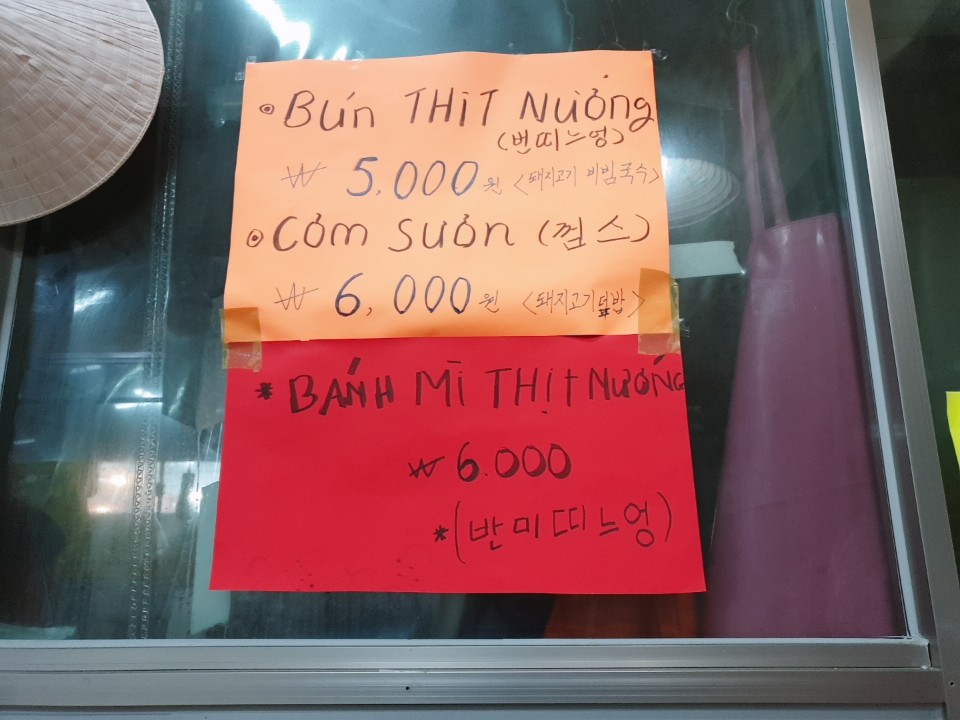 ⊙ Bún THịT Nướng
(번띠느엉)
₩ 5,000원 <돼지고기 비빔국수>
⊙ Cởm sườn (껌스)
₩ 6,000원 <돼지고기덮밥>
* BÁNH MÌ THỊt NƯỚNG
₩ 6.000
*(반미띠느엉)